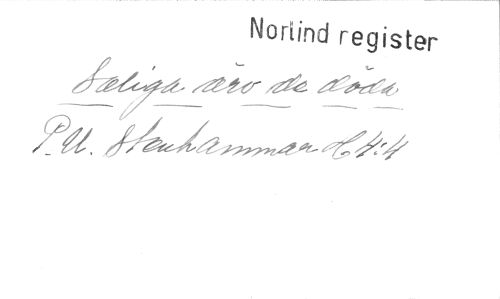 Norlind register
Saliga äro de döda
P. U. Stenhammar H 4:4